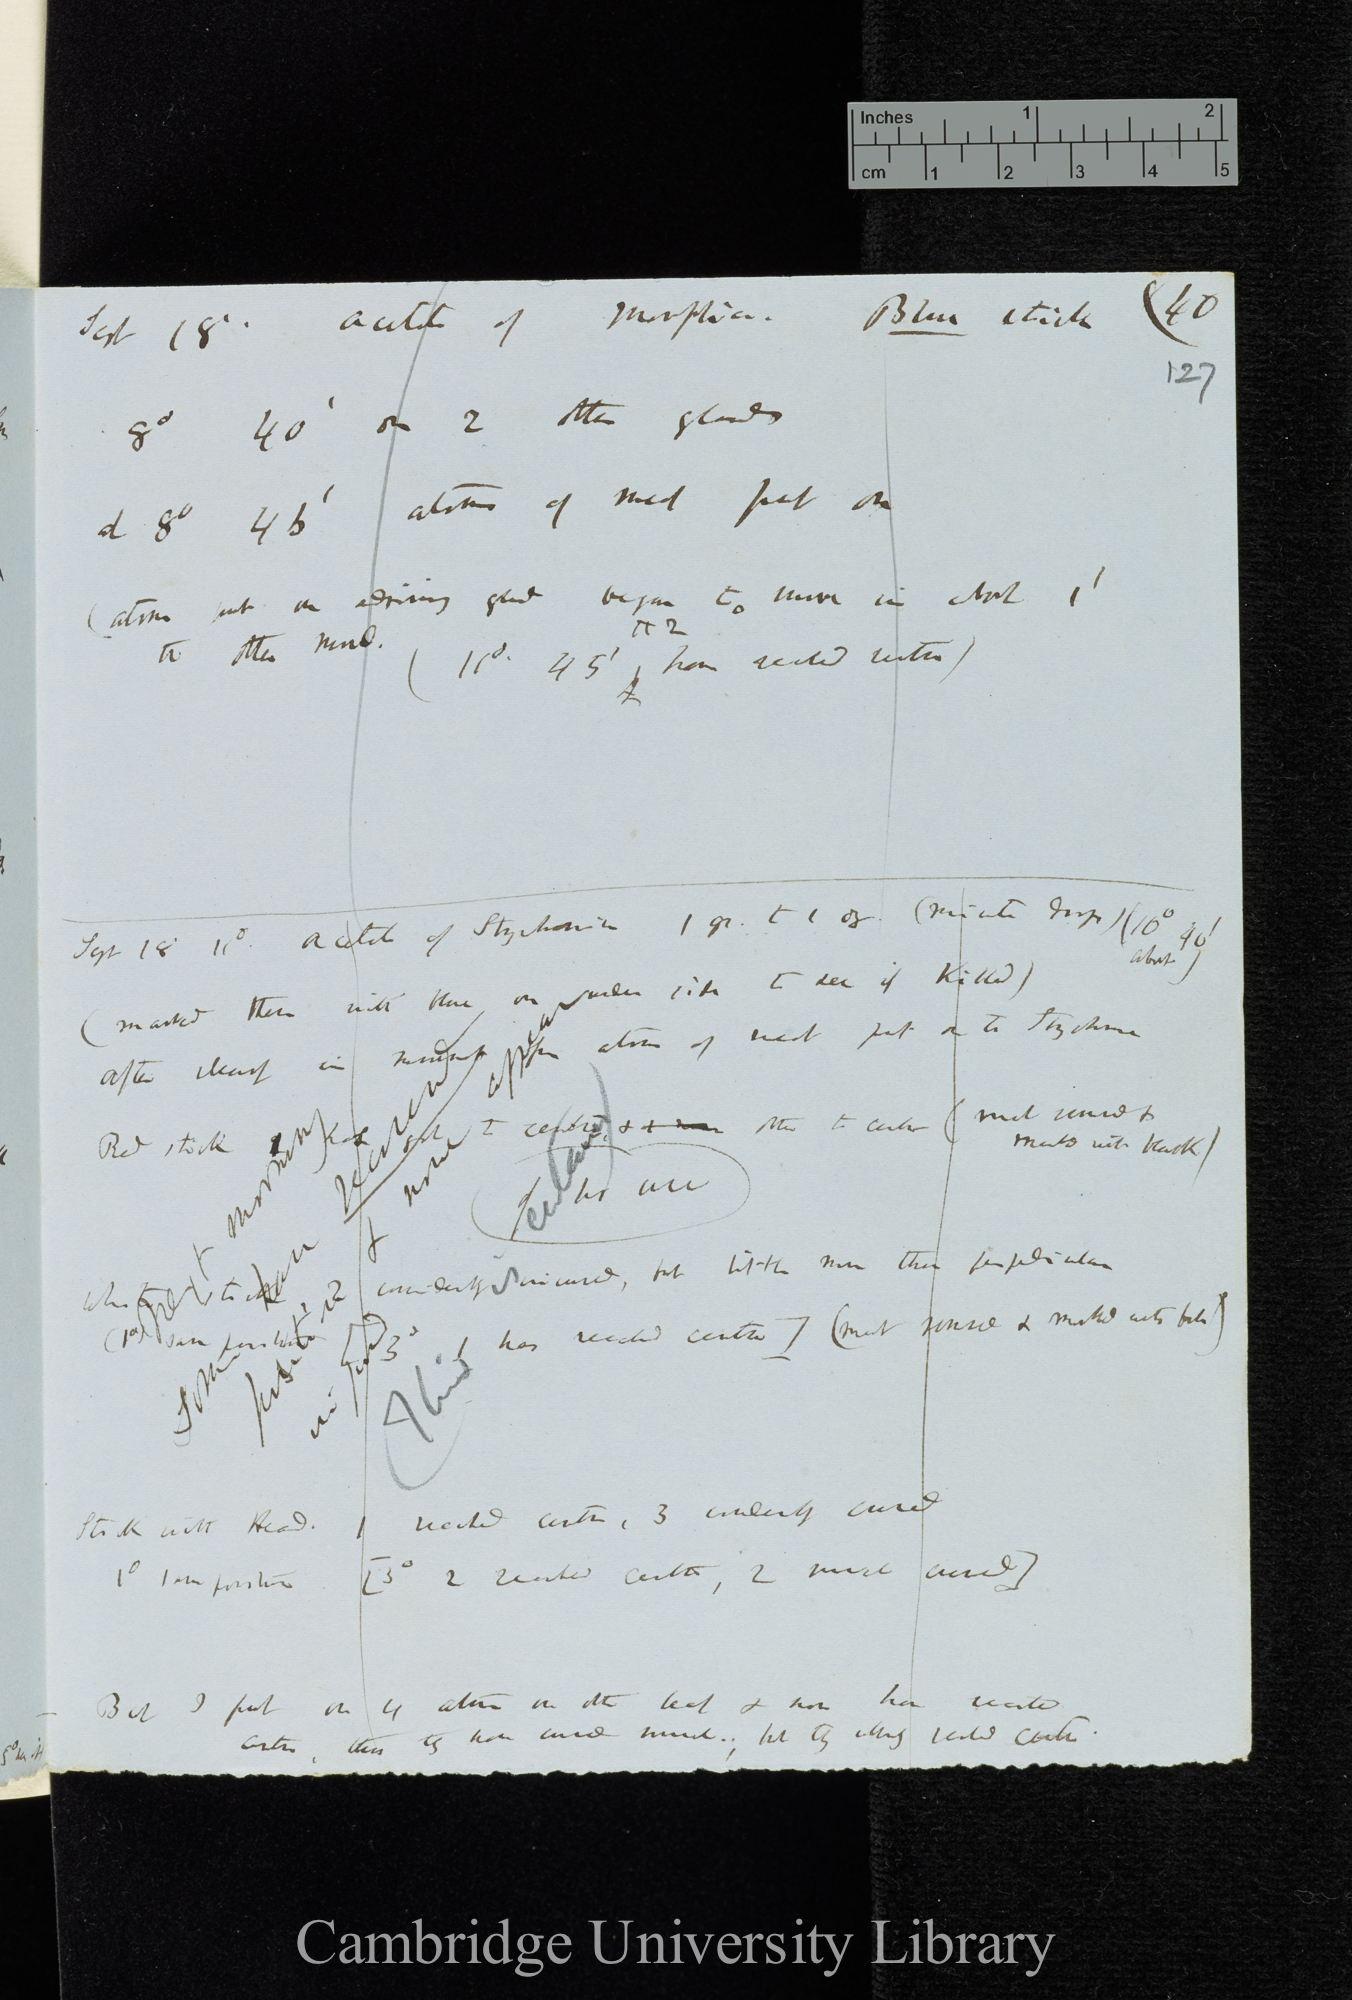 Inches 1 2
cm 1 2 3 4 5
Sept 18. Acetate of Morphia. Blue stick (40
127
8° 40' on 2 other glands
at 8° 46' atoms of meat put on
(atom put on adjoining gland began to move in about 1'
the other moved.
(11°. 45' the 2 have reached centre)
Sept 18 11°. Acetate of Strychnine 1 gr. to 1 oz. (minute drops) (10° 40' about)
(marked them with blue on under side to see if killed)
After atoms of meat put on to Strychnine
Red stick 1 has got to centre, & other to centre (meat removed &
marks with black)
has
White stick 2 considerably incurved, but little more than perpendicular
(1° same position 3° 1 has reached centre] (meat removed & marked with
next morning
Some have recovered
& none appear
This
Stick with Head. 1 reached centre, 3 considerably curved
1° same position [3° 2 reached centre, 2 much curved]
But I put on 4 atoms on other leaf & none have reached
centre, tho they have curved much.; but they reached centre.
Cambridge University Library